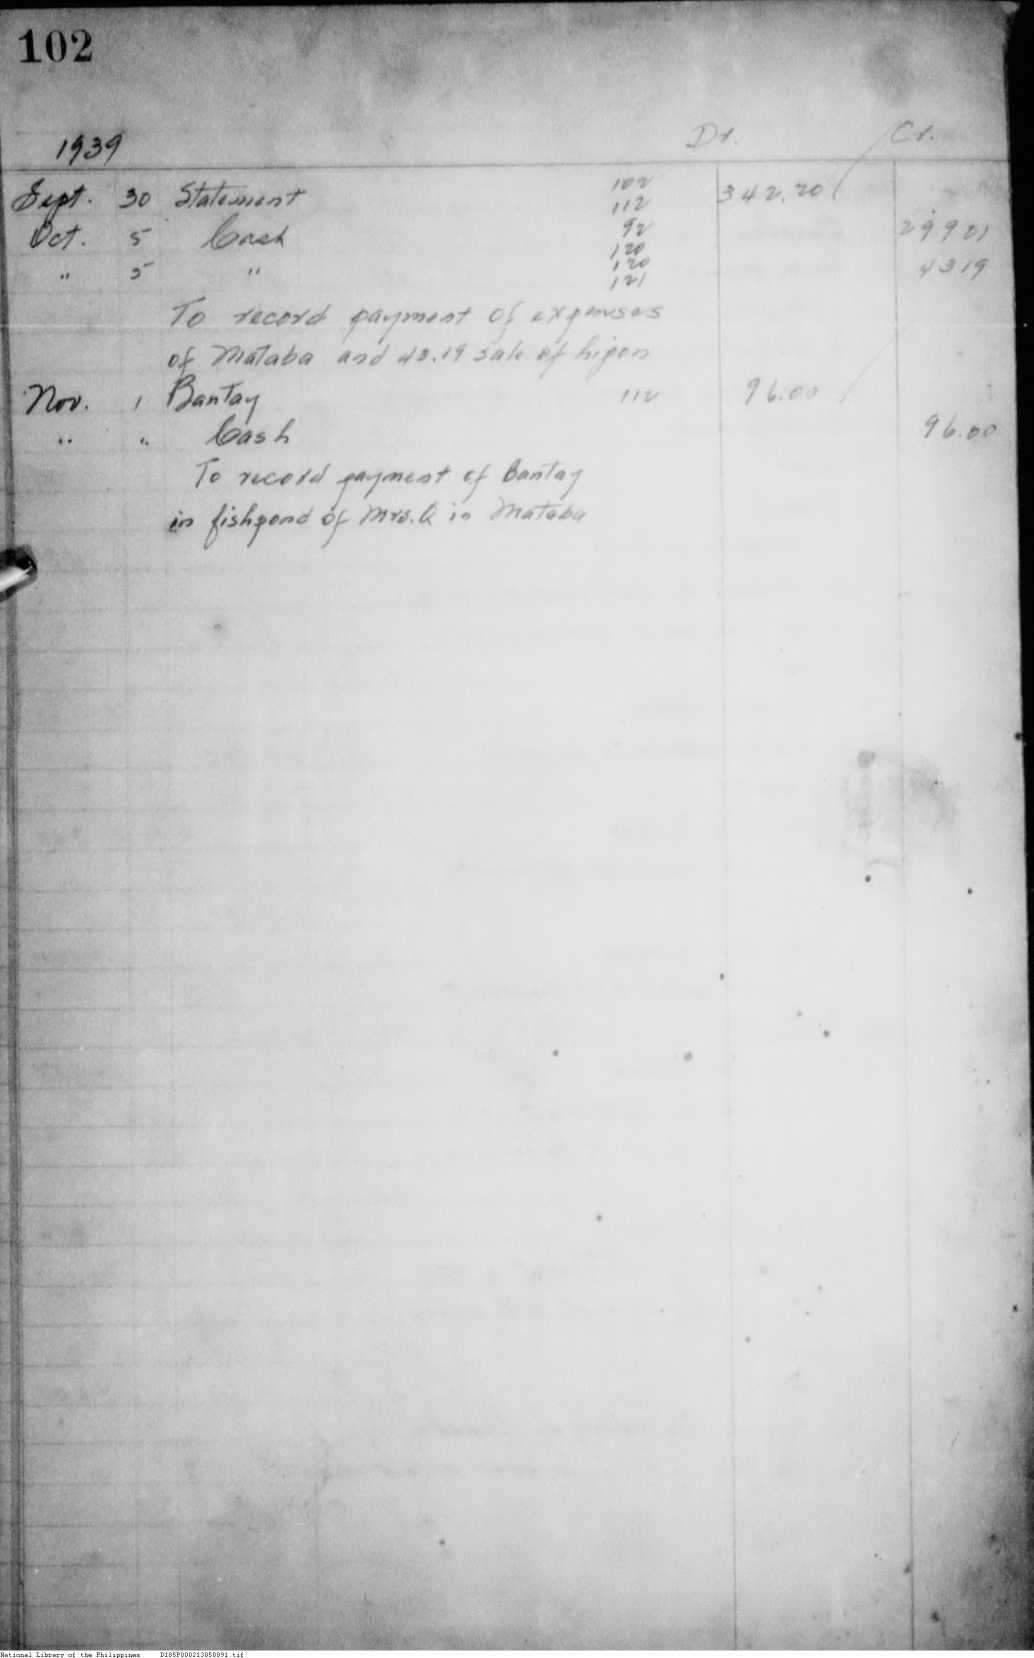 102
1939 Dr. Cr.
Sept. 30 Statement 102 342.20
112
Oct. 5 Cash 92 299 01
120
" 5 " 120 43 19
121
To record payment of expenses
of Mataba and 43.19 sale of hipon
Nov. 1 Bantay 112 96.00
" " Cash 96.00
To record payment of Bantay
in fishpond of Mrs. Q in Mataba
National Library of the Philippines D185P000213050091.tif